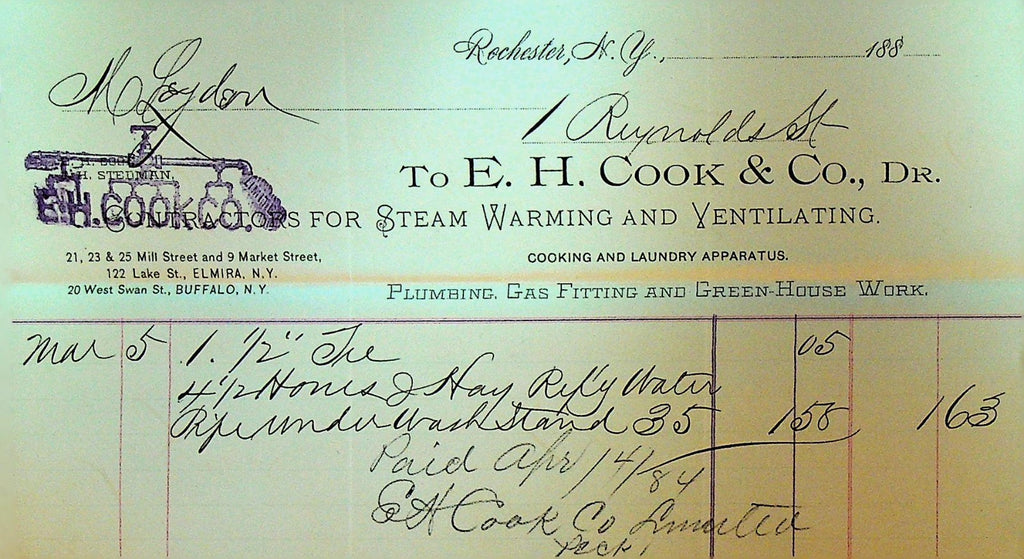 Rochester, N. Y., 188
M Loydon
1 Reynolds St
H. STEDMAN.
E.H. COOK CO.
To E. H. Cook & Co., Dr.
Contractors for Steam Warming and Ventilating.
21, 23 & 25 Mill Street and 9 Market Street,
122 Lake St., ELMIRA, N.Y.
20 West Swan St., BUFFALO, N.Y.
COOKING AND LAUNDRY APPARATUS.
Plumbing, Gas Fitting and Green-House Work.
Mar 5 1. 1/2" Tee 05
4 1/2 Hours J Hay Rep'g Water
Pipe under Wash Stand 35 158 163
Paid Apr 14/84
E H Cook Co Limited
Peck